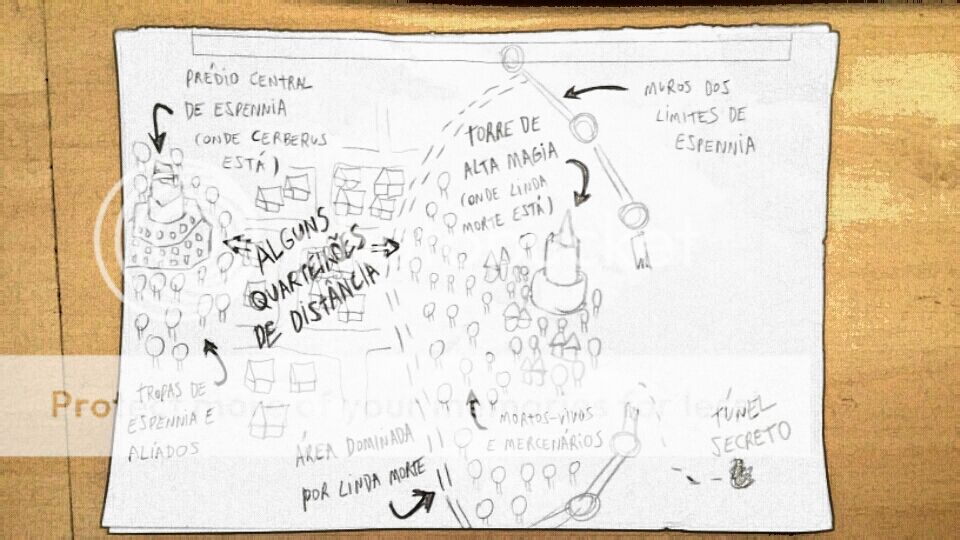 PRÉDIO CENTRAL
DE ESPENNIA
(ONDE CERBERUS
ESTÁ)
MUROS DOS
LIMITES DE
ESPENNIA
TORRE DE
ALTA MAGIA
(ONDE LINDA
MORTE ESTÁ)
ALGUNS
QUARTEIRÕES
DE DISTÂNCIA
TROPAS DE
ESPENNIA E
ALIADOS
ÁREA DOMINADA
POR LINDA MORTE
MORTOS-VIVOS
E MERCENÁRIOS
TÚNEL
SECRETO